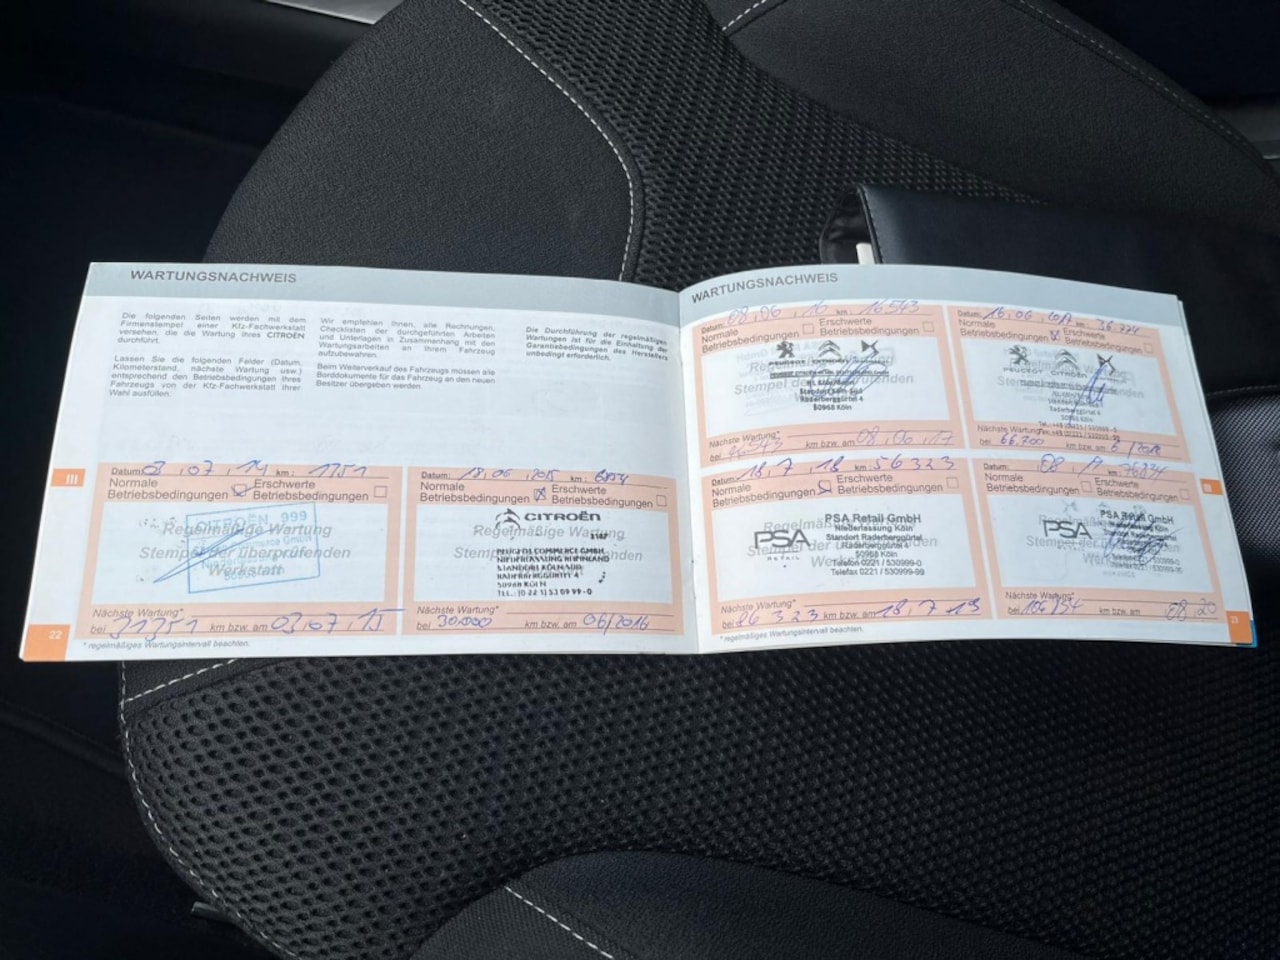 WARTUNGSNACHWEIS
Die folgenden Seiten werden mit dem
Firmenstempel einer Kfz-Fachwerkstatt
versehen, die die Wartung Ihres CITROËN
durchführt.
Lassen Sie die folgenden Felder (Datum,
Kilometerstand, nächste Wartung usw.)
entsprechend den Betriebsbedingungen Ihres
Fahrzeugs von der Kfz-Fachwerkstatt Ihrer
Wahl ausfüllen.
Wir empfehlen Ihnen, alle Rechnungen,
Checklisten der durchgeführten Arbeiten
und Unterlagen in Zusammenhang mit den
Wartungsarbeiten an Ihrem Fahrzeug
aufzubewahren.
Beim Weiterverkauf des Fahrzeugs müssen alle
Borddokumente für das Fahrzeug an den neuen
Besitzer übergeben werden.
Die Durchführung der regelmäßigen
Wartungen ist für die Einhaltung der
Garantiebedingungen des Herstellers
unbedingt erforderlich.
III
Datum: 03.07.14 km: 1351
Normale Erschwerte
Betriebsbedingungen Betriebsbedingungen
CITROËN 999
Regelmäßige Wartung
Stempel der überprüfenden
Werkstatt
Nächste Wartung*
bei 31351 km bzw. am 03/07/15
Datum: 18.06.2015 km:
Normale Erschwerte
Betriebsbedingungen Betriebsbedingungen
CITROËN
Regelmäßige Wartung
Stempel der überprüfenden
PEUGEOT COMMERCE GMBH
NIEDERLASSUNG RHEINLAND
STANDORT KÖLN-SÜD
RADERBERGGÜRTEL 4
50968 KÖLN
TEL.: (0 221) 53 09 99-0
Nächste Wartung*
bei 30.000 km bzw. am 06/2016
22
* regelmäßiges Wartungsintervall beachten.
WARTUNGSNACHWEIS
Datum: 08.06.16 km: 16543
Normale Erschwerte
Betriebsbedingungen Betriebsbedingungen
PEUGEOT CITROËN
Stempel der überprüfenden
Raderberggürtel 4
50968 Köln
Nächste Wartung*
bei 46543 km bzw. am 08.06.17
Datum: 16.06. km: 36.724
Normale Erschwerte
Betriebsbedingungen Betriebsbedingungen
PEUGEOT CITROËN
Raderberggürtel 4
50968 Köln
Nächste Wartung*
bei 66.700 km bzw. am 6/2018
Datum: 18.7.18 km: 56323
Normale Erschwerte
Betriebsbedingungen Betriebsbedingungen
PSA
RETAIL
PSA Retail GmbH
Niederlassung Köln
Standort Raderberggürtel
Raderberggürtel 4
50968 Köln
Telefon 0221 / 530999-0
Telefax 0221 / 530999-99
Nächste Wartung*
bei 86323 km bzw. am 18.7.19
Datum: km:
Normale Erschwerte
Betriebsbedingungen Betriebsbedingungen
PSA
PSA Retail GmbH
Niederlassung Köln
Nächste Wartung*
bei km bzw. am 08.20
* regelmäßiges Wartungsintervall beachten.
III